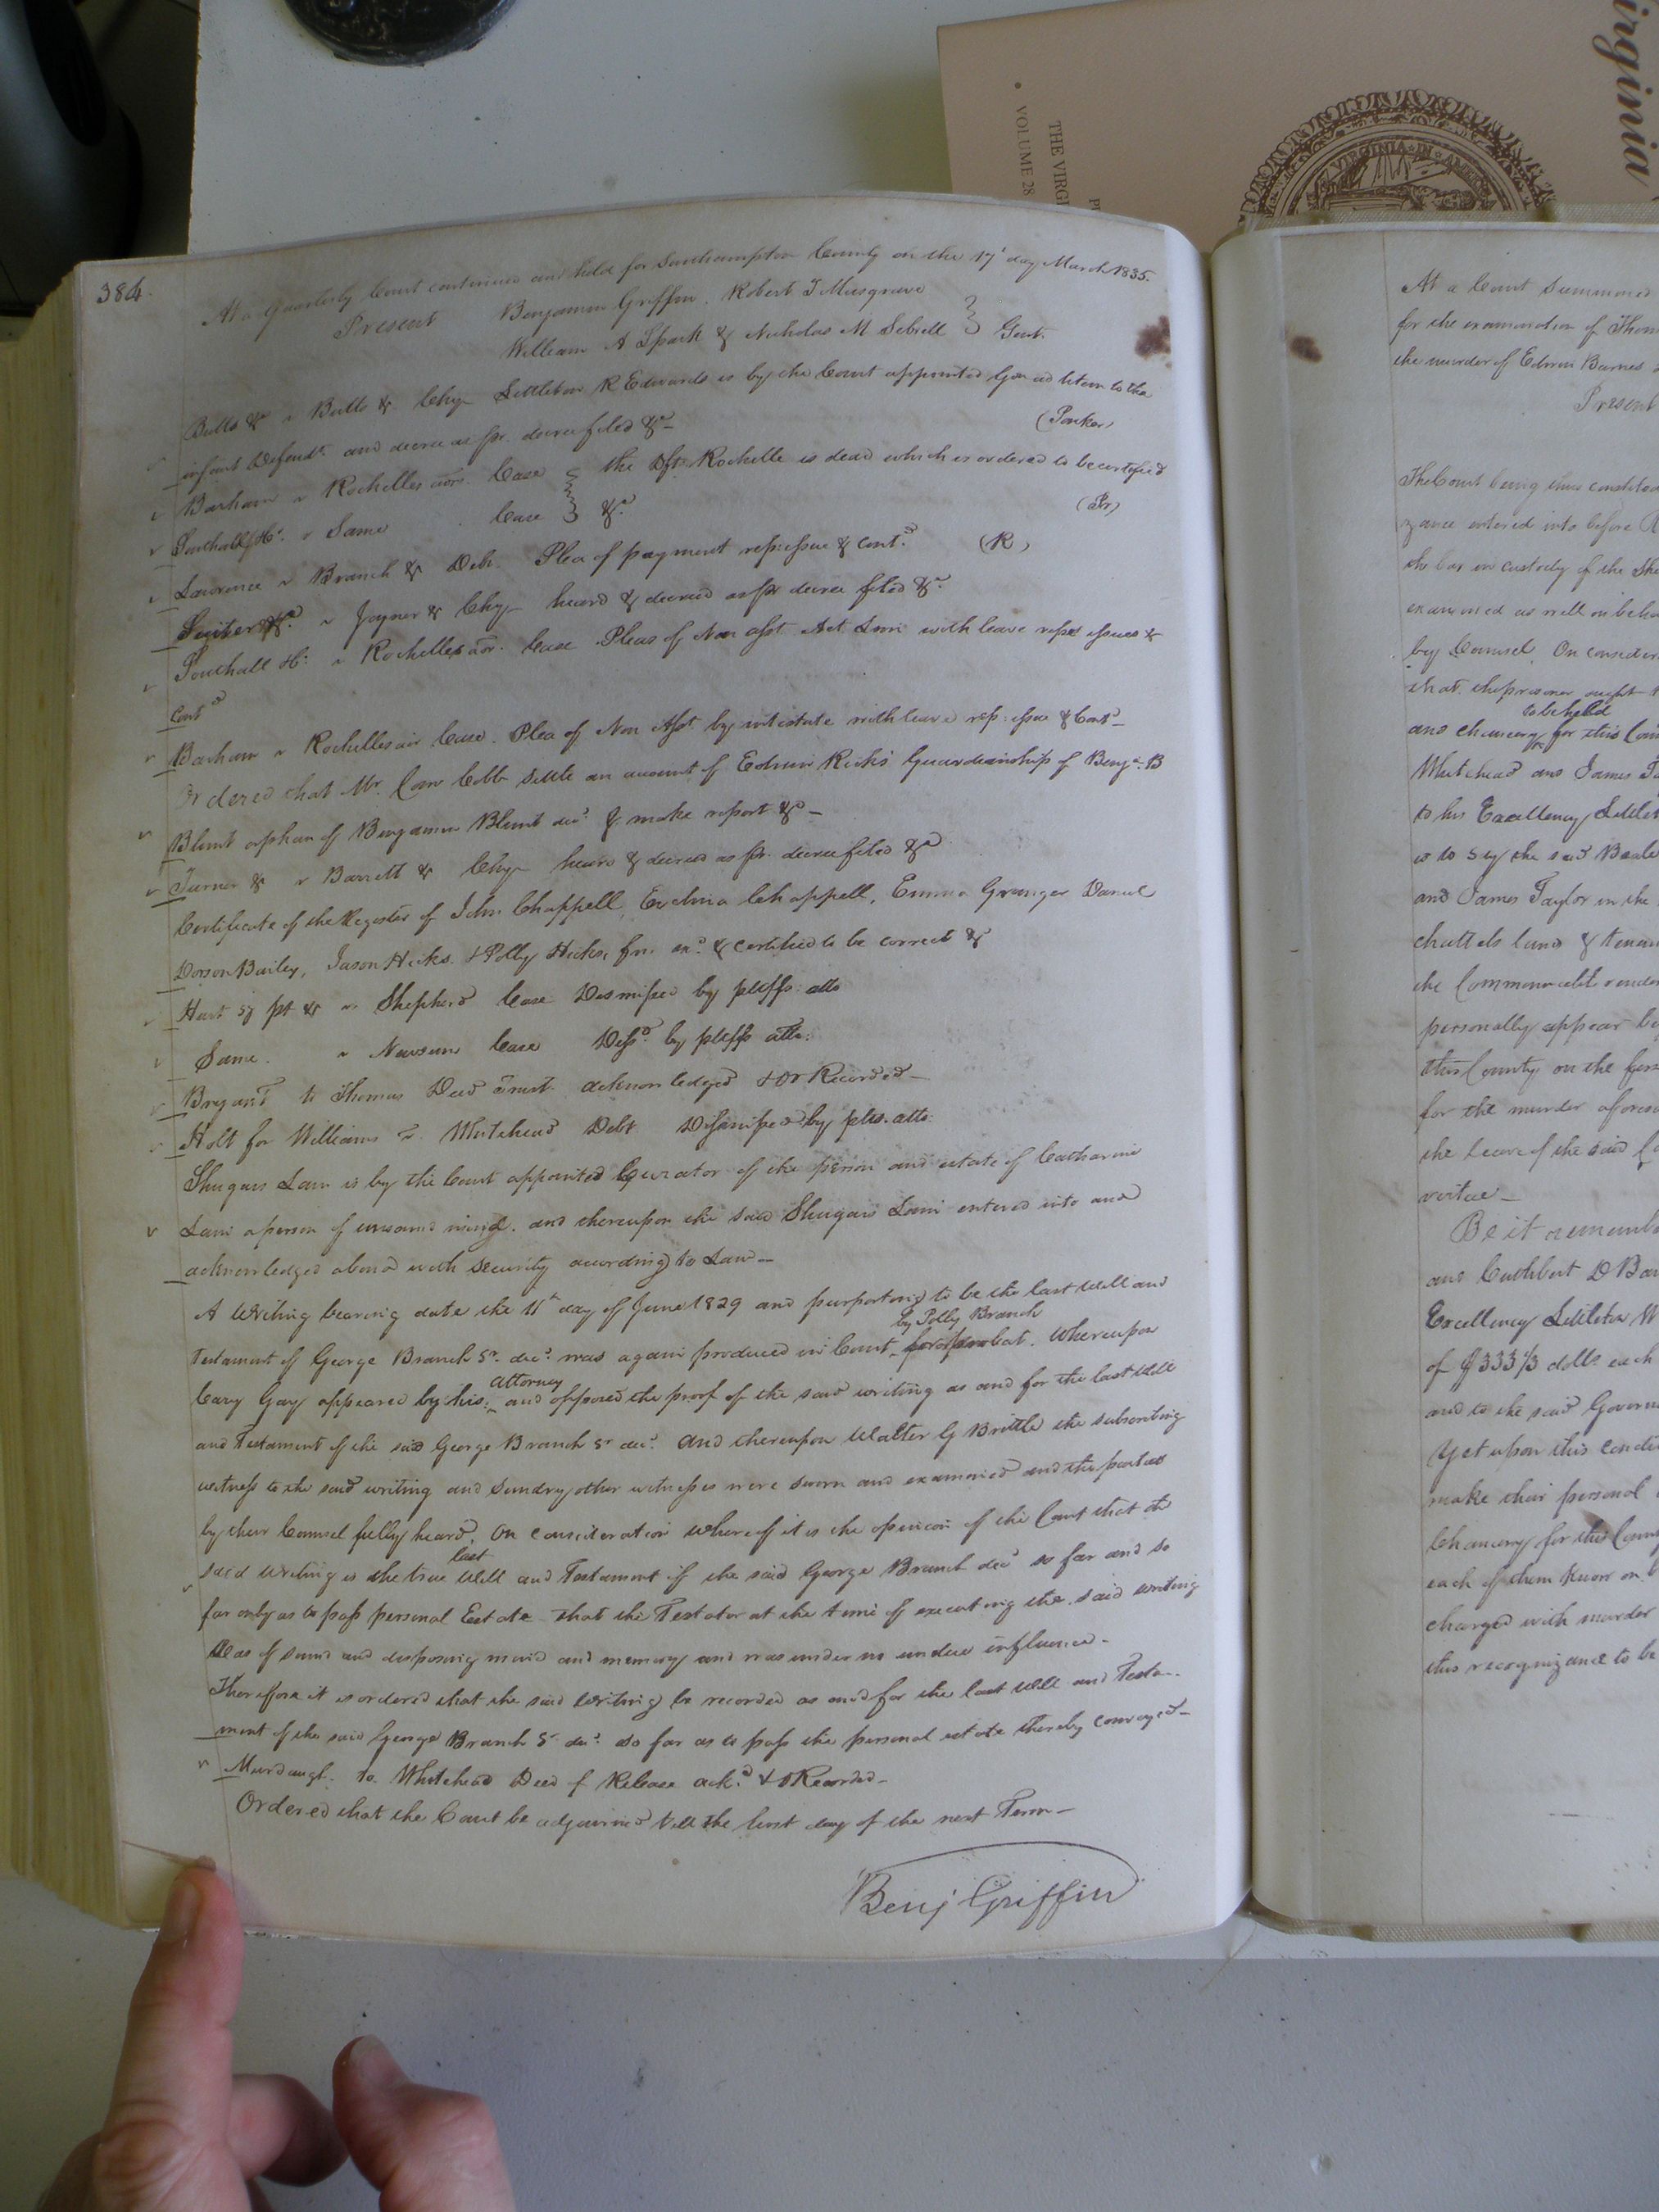 384.
At a Quarterly Court continued and held for Southampton County on the 17' day March 1835.
Present Benjamin Griffin, Robert T Musgrave
William A Spark & Nicholas M Sebrell } Gent.
Butts &c v Butts &c Chy Littleton R Edwards is by the Court appointed Gn ad litem to the
infant Defendts. and decree as pr. decree filed &c—
(Parker)
Barham v Rochelles adms. Case } the Dft Rochelle is dead which is ordered to be certified
Southall &c. v Same Case } &c.
(Pr)
Lawrence v Branch &c Debt. Plea of payment rep issue & contd. (R)
&c. v Joyner &c Chy— heard & decreed as pr decree filed &c.
Southall &c. v Rochelles adr. Case Pleas of Non asst. Act Limi with leave rep issues &
contd
Barham v Rochelles adr Case. Plea of Non Asst by intestate with leave rep. issue & Contd—
Ordered that Mr. Cobb settle an account of Edwin Ricks' Guardianship of Benja. B
Blunt orphan of Benjamin Blunt decd. & make report &c—
Turner &c v Barrett &c Chy— heard & decreed as pr. decree filed &c
Certificate of the Register of John Chappell, Evelina Chappell, Emma Granger Daniel
Dorson Bailey, Jason Hicks, & Polly Hicks, exd. & certified to be correct &c
Hart pt &c v. Shepherd Case Dismissed by pltffs. atto
Same. v Newsum Case Dissd. by pltffs atto:
Bryant to Thomas Deed Trust acknowledged & Or Recorded—
Holt for Williams v. Whitehead Debt Dismissed by plts. atto.
Shugars Lain is by the Court appointed Curator of the person and estate of Catharine
Lain a person of unsound mind. and thereupon the said Shugars Lain entered into and
acknowledged a bond with security according to Law—
A Writing bearing date the 11th day of June 1829 and purporting to be the last Will and
by Polly Branch
Testament of George Branch Sr. decd. was again produced in Court for probat. Whereupon
attorney
Cary Gay appeared by his and opposed the proof of the said writing as and for the last Will
and Testament of the said George Branch Sr decd. and thereupon Walter G Brittle the subscribing
witness to the said writing and sundry other witnesses were sworn and examined and the parties
by their Counsel fully heard. On consideration whereof it is the opinion of the Court that the
last
said writing is the true Will and Testament of the said George Branch decd so far and so
far only as to pass personal Estate that the Testator at the time of executing the said writing
Was of sound and disposing mind and memory and was under no undue influence—
Therefore it is ordered that the said Writing be recorded as and for the last Will and Testa-
ment of the said George Branch Sr decd. so far as to pass the personal estate thereby conveyed—
Murdaugh. to Whitehead Deed of Release ackd. & O Recorded—
Ordered that the Court be adjourned till the first day of the next Term—
Benj Griffin
At a Court Summoned
for the examination of Thom
the murder of Edwin Barnes
Present
The Court being thus constituted
zance entered into before
the bar in custody of the She
examined as well on beha
by Counsel. On consider
that the prisoner ought
to be held
and chancery for this Coun
Whitehead and James Ta
to his Excellency Littlet
is to say the said Beale
and James Taylor in the
chattels lands & tenem
the Commonwealth render
personally appear be
this County on the firs
for the murder aforesa
the leave of the said Co
virtue—
Be it rememb
and Cuthbert D Bar
Excellency Littleton W
of $333 1/3 dolls each
and to the said Govern
Yet upon this condit
make their personal
Chancery for this Coun
each of them know on b
charged with murder
this recognizance to be
irginia
THE VIRGI
VOLUME 28
VIRGINIA